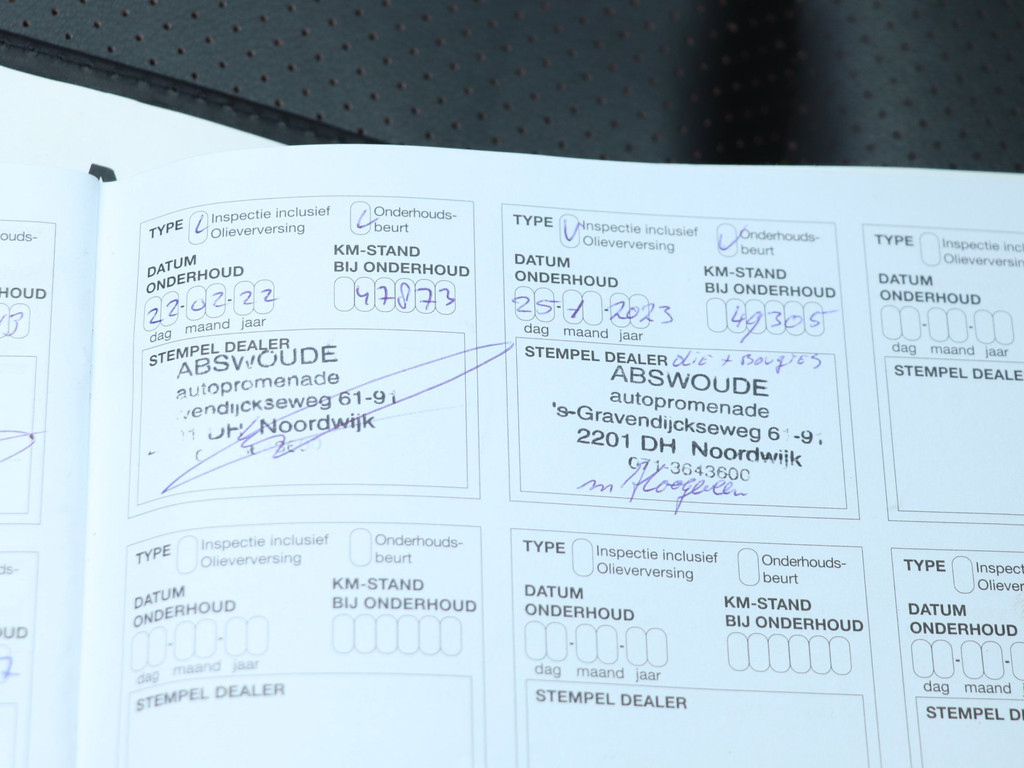 ouds-
HOUD
TYPE Inspectie inclusief Onderhouds-
Olieverversing beurt
DATUM KM-STAND
ONDERHOUD BIJ ONDERHOUD
22-02-22 47873
dag maand jaar
STEMPEL DEALER
ABSWOUDE
autopromenade
vendijckseweg 61-91
DH Noordwijk
TYPE Inspectie inclusief Onderhouds-
Olieverversing beurt
DATUM KM-STAND
ONDERHOUD BIJ ONDERHOUD
25-1-2023 49305
dag maand jaar
STEMPEL DEALER olie + Bougies
ABSWOUDE
autopromenade
's-Gravendijckseweg 6 -9
2201 DH Noordwijk
071-3643600
TYPE Inspectie incl
Olieverversing
DATUM
ONDERHOUD
dag maand jaar
STEMPEL DEALE
ds-
OUD
TYPE Inspectie inclusief Onderhouds-
Olieverversing beurt
DATUM KM-STAND
ONDERHOUD BIJ ONDERHOUD
dag maand jaar
STEMPEL DEALER
TYPE Inspectie inclusief Onderhouds-
Olieverversing beurt
DATUM KM-STAND
ONDERHOUD BIJ ONDERHOUD
dag maand jaar
STEMPEL DEALER
TYPE Inspect
Oliever
DATUM
ONDERHOUD
dag maand ja
STEMPEL D